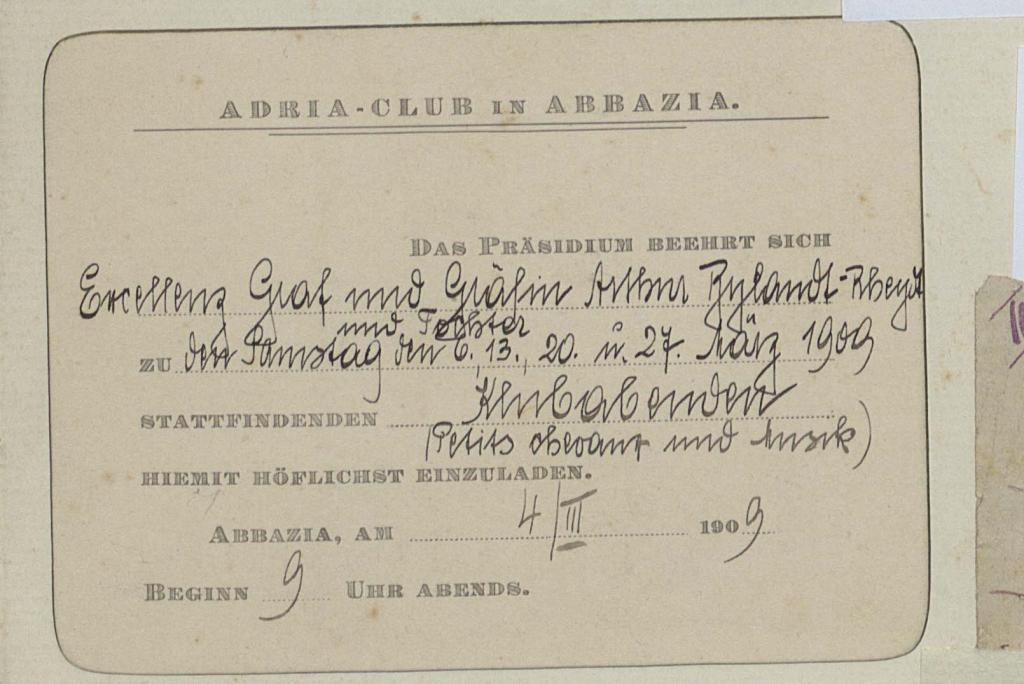 ADRIA-CLUB IN ABBAZIA.
DAS PRÄSIDIUM BEEHRT SICH
Excellenz Graf und Gräfin Arthur Bylandt-Rheydt
und Tochter
ZU den Samstag den 6., 13., 20. u. 27. März 1909
STATTFINDENDEN Klubabenden
(Petits chevaux und Musik)
HIEMIT HÖFLICHST EINZULADEN.
ABBAZIA, AM 4/III 1909
BEGINN 9 UHR ABENDS.